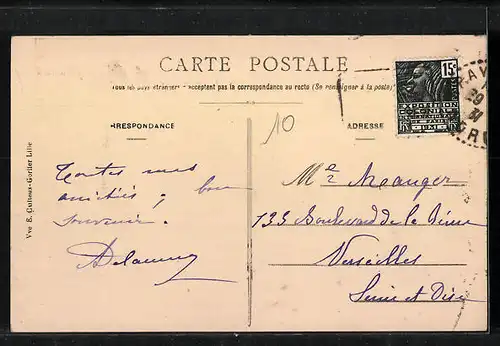 CARTE POSTALE
Tous les pays étrangers n'acceptent pas la correspondance au recto (Se renseigner à la poste)
RRESPONDANCE
ADRESSE
10
15c
EXPOSITION
COLONIALE
INTERNATIONALE
PARIS
1931
AV
29
31
ER
Toutes mes
amitiés; bon
souvenir.
Delaunay
Me Mauger
133 Boulevard de la Reine
Versailles
Seine et Oise
Vve S. Cuitteux-Gortier Lille